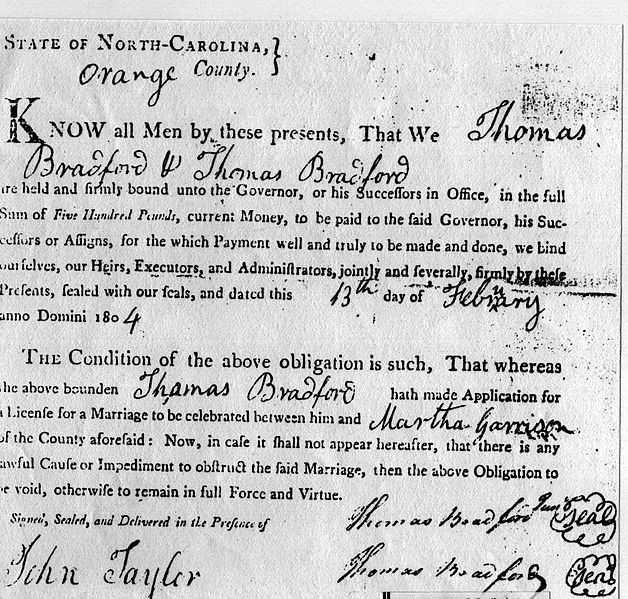 STATE OF NORTH-CAROLINA, }
Orange County.
KNOW all Men by these presents, That We Thomas
Bradford & Thomas Bradford
are held and firmly bound unto the Governor, or his Succeſſors in Office, in the full
Sum of Five Hundred Pounds, current Money, to be paid to the ſaid Governor, his Suc-
ceſſors or Aſſigns, for the which Payment well and truly to be made and done, we bind
ourſelves, our Heirs, Executors, and Adminiſtrators, jointly and ſeverally, firmly by theſe
Preſents, ſealed with our ſeals, and dated this 13th day of February
anno Domini 1804
THE Condition of the above obligation is ſuch, That whereas
the above bounden Thomas Bradford hath made Application for
a Licenſe for a Marriage to be celebrated between him and Martha Garrison
of the County aforeſaid: Now, in caſe it ſhall not appear hereafter, that there is any
lawful Cauſe or Impediment to obſtruct the ſaid Marriage, then the above Obligation to
be void, otherwiſe to remain in full Force and Virtue.
Signed, Sealed, and Delivered in the Preſence of Thomas Bradford Seal
John Taylor Thomas Bradford Seal